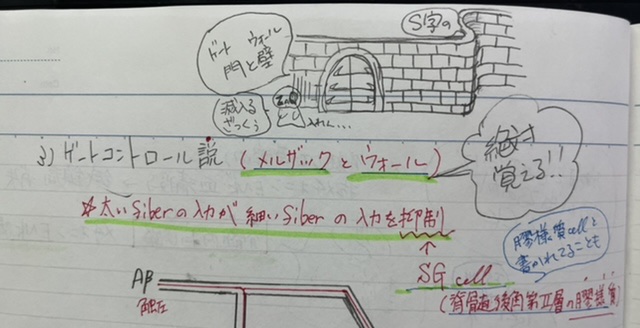 S字の
ゲート ウォール
門と壁
減入る
ざっくぅ
入れん...
3) ゲートコントロール説 (メルザックとウォール)
絶対
覚える!!
☆太いfiberの入力が細いfiberの入力を抑制
↑
SG cell
膠様質cellと
書かれてることも
(脊髄後角第II層の膠様質)
Aβ
触圧